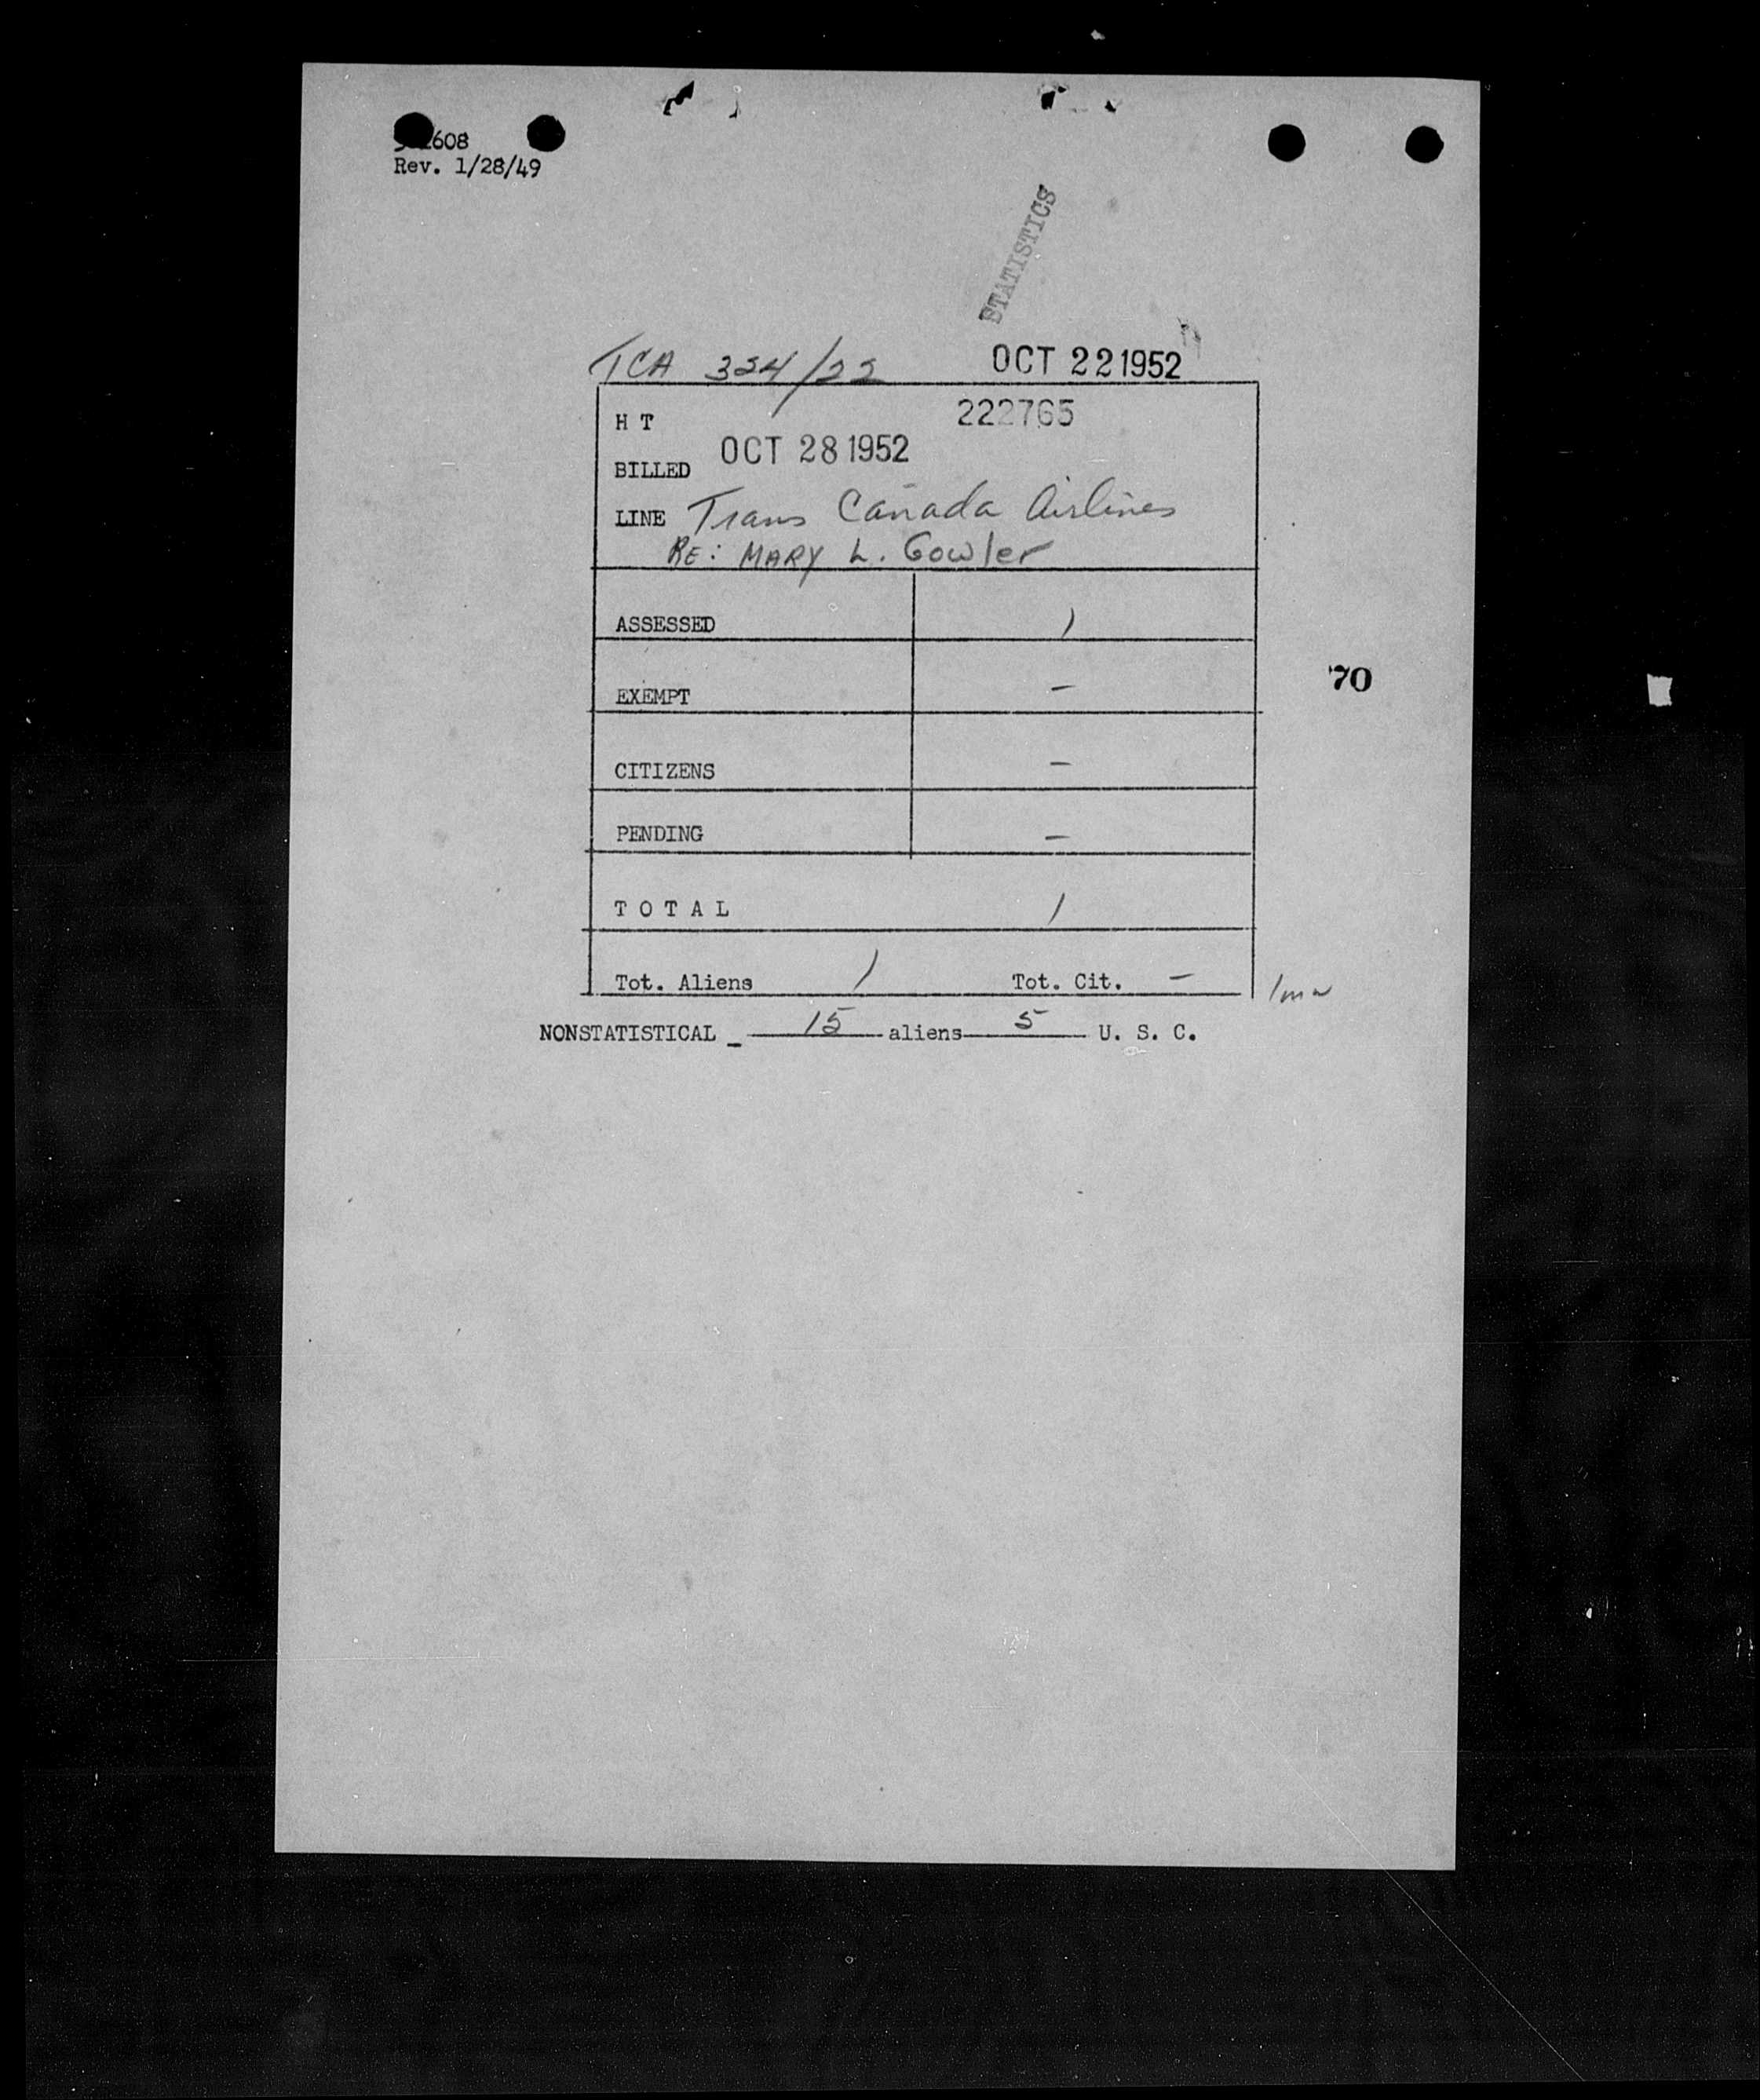 608
Rev. 1/28/49
STATISTICS
TCA 324/22 OCT 22 1952
H T 222765
BILLED OCT 28 1952
LINE Trans Canada Airlines
RE: MARY L. Gowler
ASSESSED 1
EXEMPT -
CITIZENS -
PENDING -
T O T A L 1
Tot. Aliens 1 Tot. Cit. -
NONSTATISTICAL 15 aliens 5 U. S. C.
70